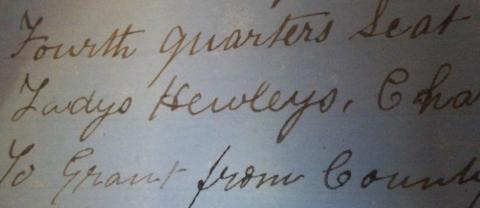 Fourth quarters Seat
Ladys Hewleys, Cha
To Grant from County